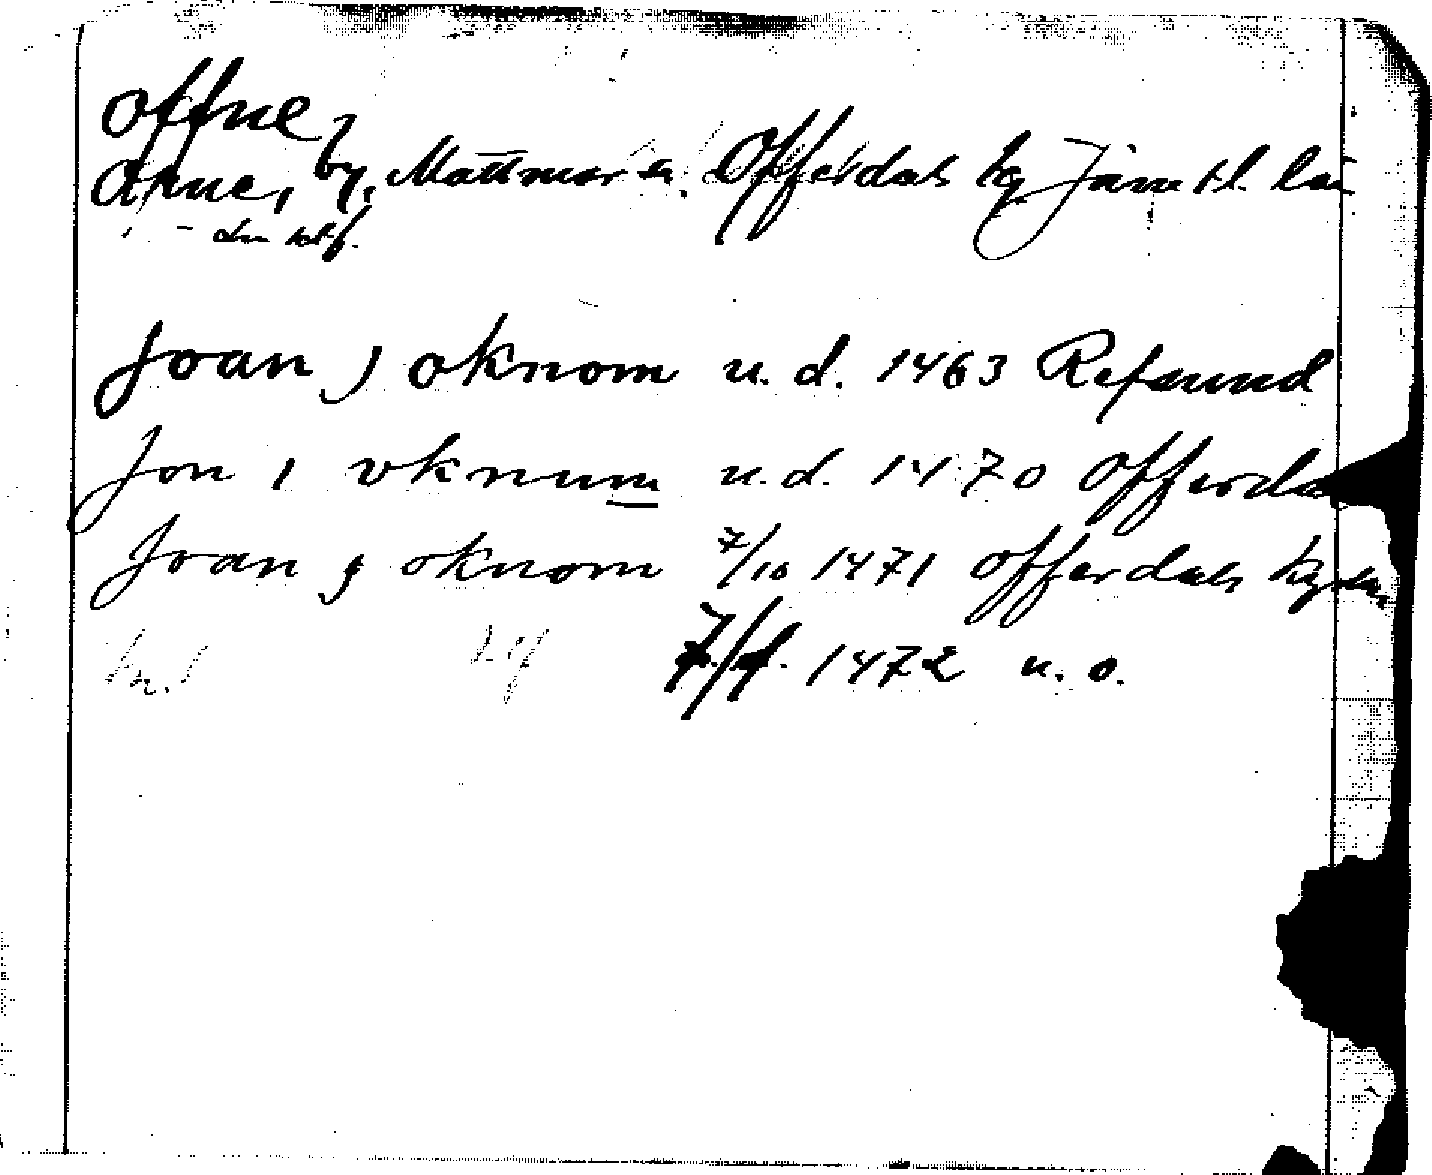 Offne
Åkne, by, Mattmar s. Offerdals tg Jämtl. län
Joan j oknom u.d. 1463 Refsund
Jon i vknum u.d. 1470 Offerda
Joan j oknom 7/10 1471 Offerdals kyrka
1472 u.o.